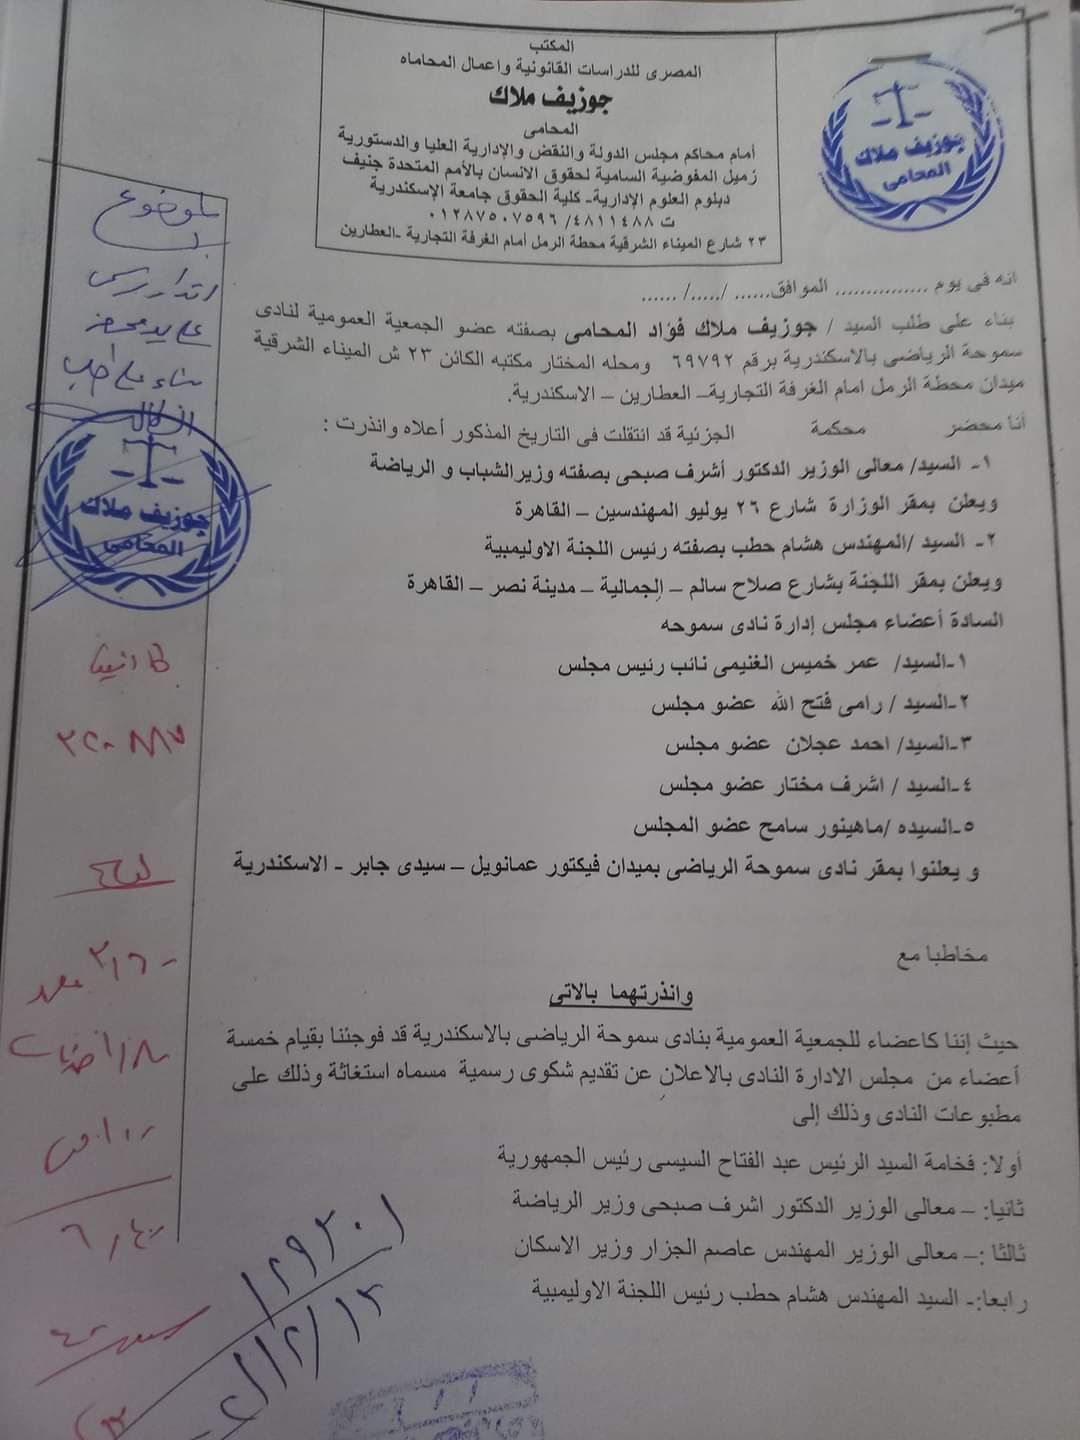 المكتب
المصرى للدراسات القانونية واعمال المحاماه
جوزيف ملاك
المحامى
أمام محاكم مجلس الدولة والنقض والإدارية العليا والدستورية
زميل المفوضية السامية لحقوق الانسان بالأمم المتحدة جنيف
دبلوم العلوم الإدارية- كلية الحقوق جامعة الإسكندرية
ت ٤٨١١٤٨٨/ ٠١٢٨٧٥٠٧٥٩٦
٢٣ شارع الميناء الشرقية محطة الرمل أمام الغرفة التجارية -العطارين
جوزيف ملاك
المحامى
الموضوع
انذار رسمى
على يد محضر
بناء على طلب
جوزيف ملاك
المحامى
انه فى يوم ............... الموافق....../...../ ......
بناء على طلب السيد / جوزيف ملاك فؤاد المحامى بصفته عضو الجمعية العمومية لنادى
سموحة الرياضى بالاسكندرية برقم ٦٩٧٩٢ ومحله المختار مكتبه الكائن ٢٣ ش الميناء الشرقية
ميدان محطة الرمل امام الغرفة التجارية– العطارين – الاسكندرية.
أنا محضر محكمة الجزئية قد انتقلت فى التاريخ المذكور أعلاه وانذرت :
١- السيد/ معالى الوزير الدكتور أشرف صبحى بصفته وزيرالشباب و الرياضة
ويعلن بمقر الوزارة شارع ٢٦ يوليو المهندسين – القاهرة
٢- السيد /المهندس هشام حطب بصفته رئيس اللجنة الاوليمبية
ويعلن بمقر اللجنة بشارع صلاح سالم – الجمالية – مدينة نصر – القاهرة
السادة أعضاء مجلس إدارة نادى سموحه
١-السيد/ عمر خميس الغنيمى نائب رئيس مجلس
٢-السيد / رامى فتح الله عضو مجلس
٣-السيد/ احمد عجلان عضو مجلس
٤-السيد / اشرف مختار عضو مجلس
٥-السيده /ماهينور سامح عضو المجلس
و يعلنوا بمقر نادى سموحة الرياضى بميدان فيكتور عمانويل – سيدى جابر - الاسكندرية
مخاطبا مع
وانذرتهما بالاتى
حيث إننا كاعضاء للجمعية العمومية بنادى سموحة الرياضى بالاسكندرية قد فوجئنا بقيام خمسة
أعضاء من مجلس الادارة النادى بالاعلان عن تقديم شكوى رسمية مسماه استغاثة وذلك على
مطبوعات النادى وذلك إلى
أولا: فخامة السيد الرئيس عبد الفتاح السيسى رئيس الجمهورية
ثانيا: – معالى الوزير الدكتور اشرف صبحى وزير الرياضة
ثالثا :– معالى الوزير المهندس عاصم الجزار وزير الاسكان
رابعا:- السيد المهندس هشام حطب رئيس اللجنة الاوليمبية